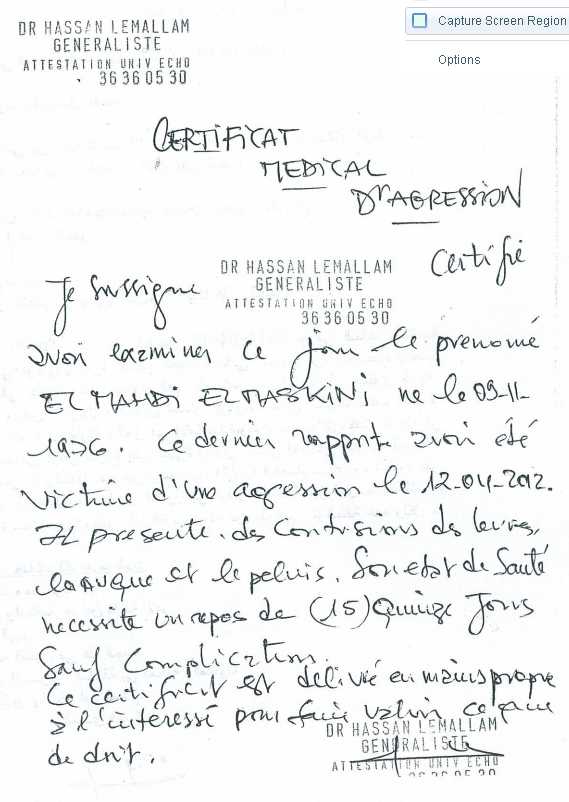 DR HASSAN LEMALLAM
GENERALISTE
ATTESTATION UNIV ECHO
36 36 05 30
Capture Screen Region
Options
CERTIFICAT
MEDICAL
D'AGRESSION
DR HASSAN LEMALLAM
GENERALISTE
ATTESTATION UNIV ECHO
36 36 05 30
Je sussigne
certifié
avoir examiner ce jour le prenomé
EL MAHDI ELMASKINI ne le 09-11-
1976. Ce dernier rapporte avoir été
victime d'une agression le 12-04-2012.
Il presente des contusions des levres,
la nuque et le pelvis. Son etat de Santé
necessite un repos de (15) Quinze Jours
Sauf Complication.
Ce certificat est délivré en mains propre
à l'interessé pour faire valoir ce que
de droit.
DR HASSAN LEMALLAM
GENERALISTE
ATTESTATION UNIV ECHO
36 36 05 30